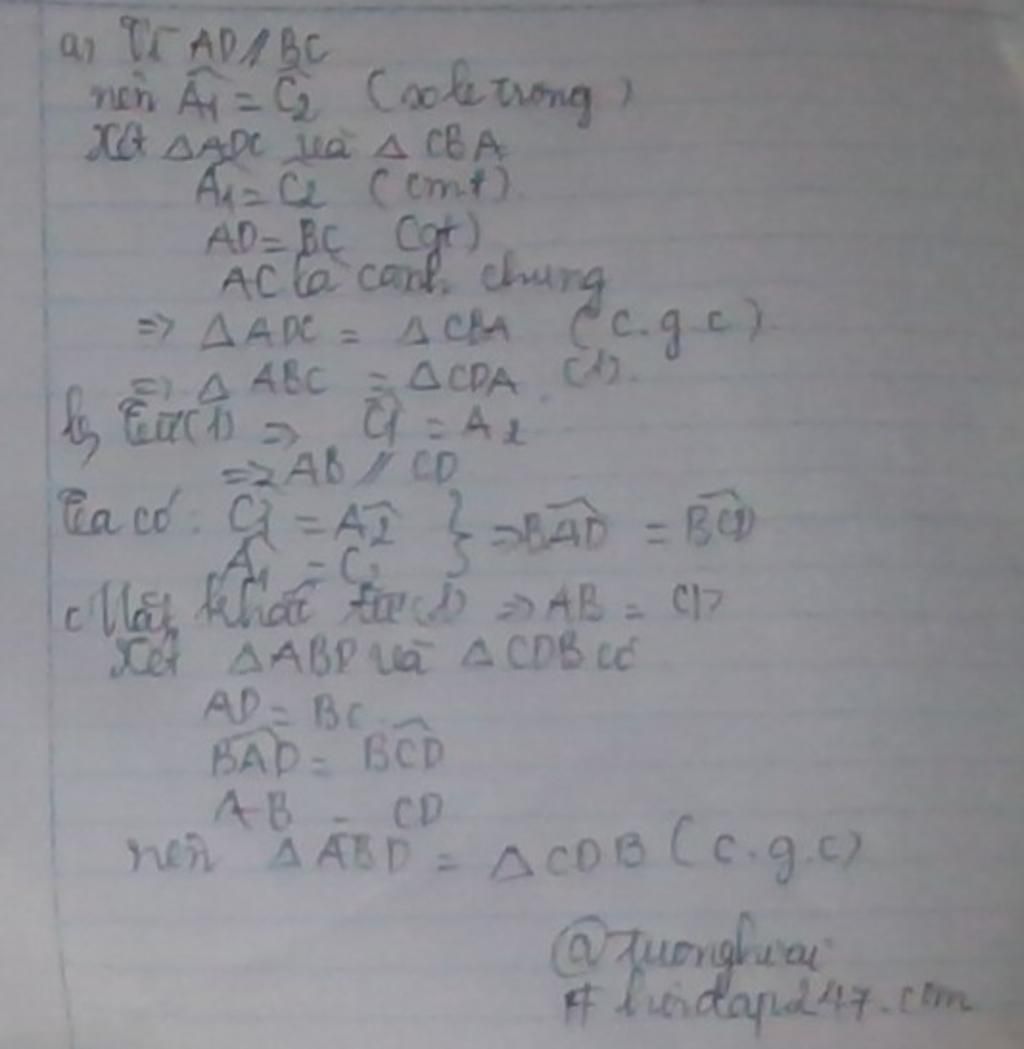 a, Vì AD // BC
nên Â1 = Ĉ2 (so le trong)
Xét △ADC và △CBA
Â1 = Ĉ2 (cmt)
AD = BC (gt)
AC là cạnh chung
=> △ADC = △CBA (c.g.c)
=> △ABC = △CDA (1).
b, Từ (1) => Ĉ1 = A2
=> AB // CD
Ta có: Ĉ1 = Â2 } => BAD = BCD
Â1 = C2
c, Mặt khác từ (1) => AB = CD
Xét △ABD và △CDB có
AD = BC
BAD = BCD
AB = CD
nên △ABD = △CDB (c.g.c)
# hoidap247.com